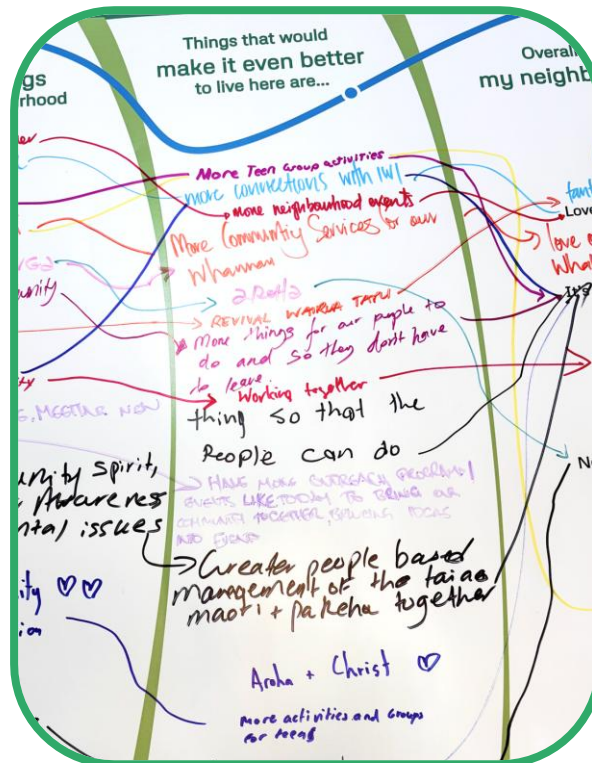 gs
rhood
Things that would
make it even better
to live here are...
Overall
my neighb
More Teen Group activities
more connections with IWI
more neighbourhood events
More Community Services for our
Whannau
aroha
REVIVAL WAIRUA TAPU
More things for our people to
do and so they don't have
to leave.
Working together
thing so that the
People can do
HAVE MORE OUTREACH PROGRAMS/
EVENTS LIKE TODAY TO BRING OUR
COMMUNITY TOGETHER,
INTO
Greater people based
management of the taiao
maori + pakeha together
Aroha + Christ
more activities and Groups
for teens
unity
ity
MEETING NEW
unity spirit,
Awareness
ntal issues
ity
ion
fant
Love
love o
What
It's
No